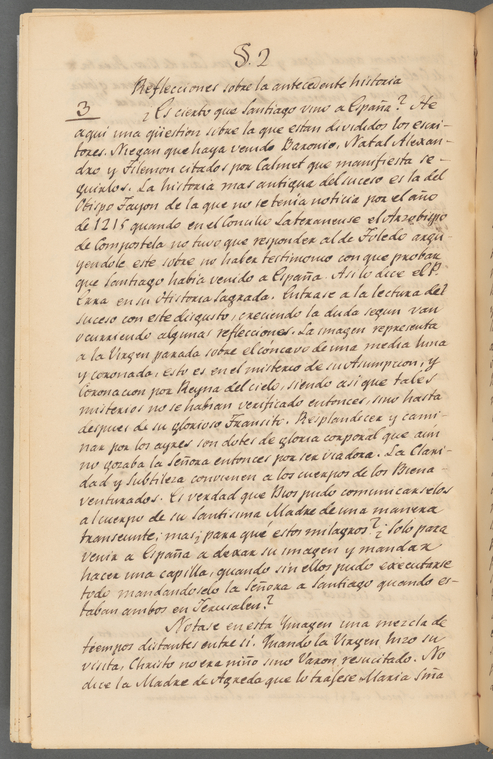 §. 2
Reflecciones sobre la antecedente historia
3
¿Es cierto que Santiago vino a España? He
aqui una qüestion sobre la que estan divididos los escri-
tores. Niegan que haya venido Baronio, Natal Alexan-
dro y Filemon citados por Calmet que manifiesta se-
guirlos. La historia mas antigua del suceso es la del
Obispo Tajon de la que no se tenia noticia por el año
de 1215 quando en el Concilio Lateranense el Arzobispo
de Compostela no tuvo que responder al de Toledo argu-
yendole este sobre no haber testimonio con que probar
que Santiago habia venido a España. Asi lo dice el P.
en su Historia Sagrada. Entrase a la lectura del
suceso con este disgusto, creciendo la duda segun van
ocurriendo algunas reflecciones. La imagen representa
a la Virgen parada sobre el cóncavo de una media luna
y coronada, esto es en el misterio de su Asumpcion, y
Coronacion por Reyna del cielo, siendo asi que tales
misterios no se habian verificado entonces, sino hasta
despues de su glorioso Transito. Resplandecer y cami-
nar por los ayres son dotes de gloria corporal que aun
no gozaba la Señora entonces por ser viadora. La Clari-
dad y Subtileza convienen a los cuerpos de los Biena-
venturados. Es verdad que Dios pudo comunicarselos
al cuerpo de su Santisima Madre de una manera
transeunte; mas ¿para qué estos milagros? ¿Solo para
venir a España a dexar su imagen y mandar
hacer una capilla, quando sin ellos pudo executarse
todo mandandoselo la Señora a Santiago quando es-
taban ambos en Jerusalen?
Notase en esta Ymagen una mezcla de
tiempos distantes entre sí. Quando la Virgen hizo su
visita, Christo no era niño sino Varon, resucitado. No
dice la Madre de Agreda que lo traxese Maria Sma